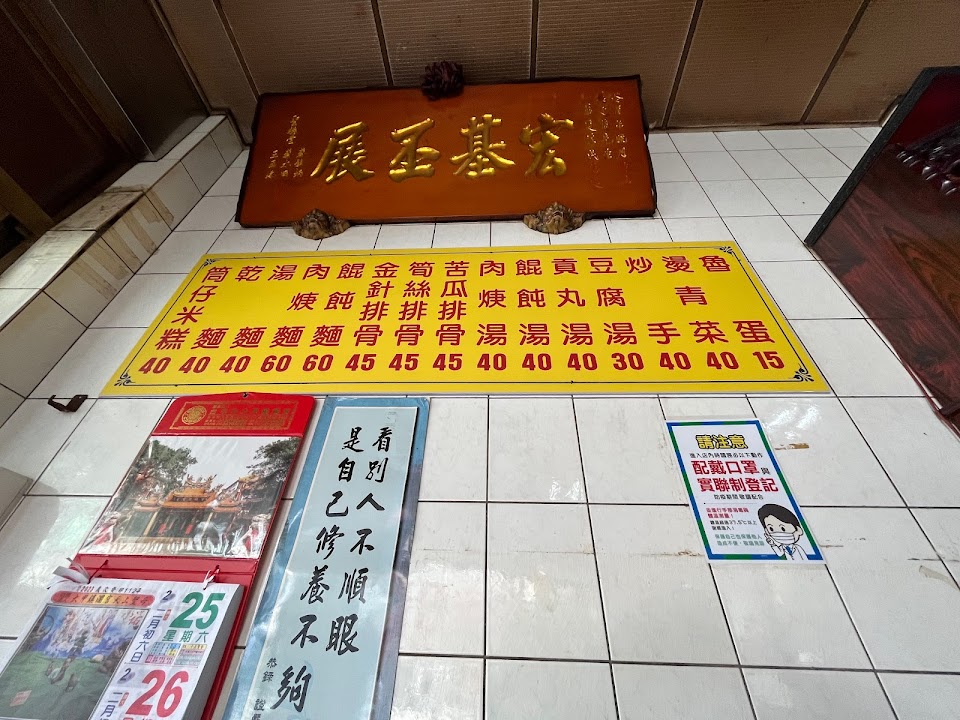 宏基丕展
筒仔米糕 40
乾麵 40
湯麵 40
肉焿麵 60
餛飩麵 60
金針排骨 45
筍絲排骨 45
苦瓜排骨 45
肉焿湯 40
餛飩湯 40
貢丸湯 40
豆腐湯 30
炒手 40
燙青菜 40
魯蛋 15
看別人不順眼
是自己修養不夠
恭錄
請注意
配戴口罩與
實聯制登記
防疫期間 敬請配合
2
25
二月初六日
星期六
2
26